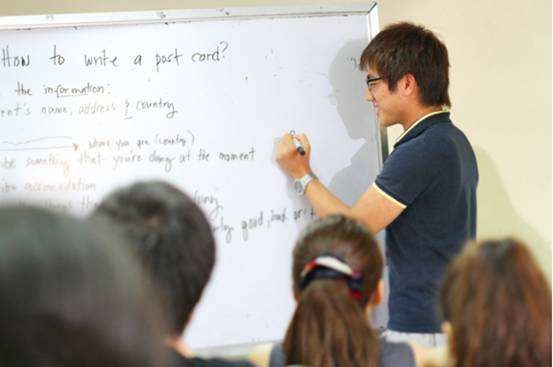 How to write a post card?
the information:
ent's name, address & country
where you are (country)
be something that you're doing at the moment
accomodation
good, bad or